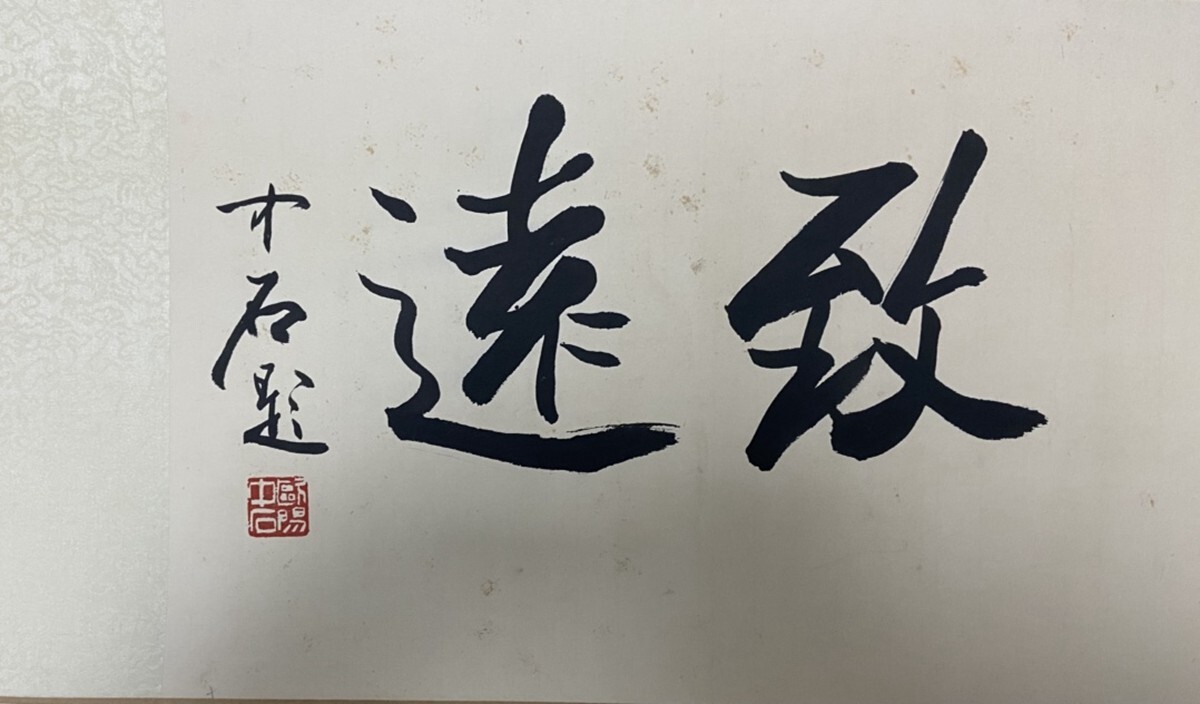 致遠
中石題
歐陽中石